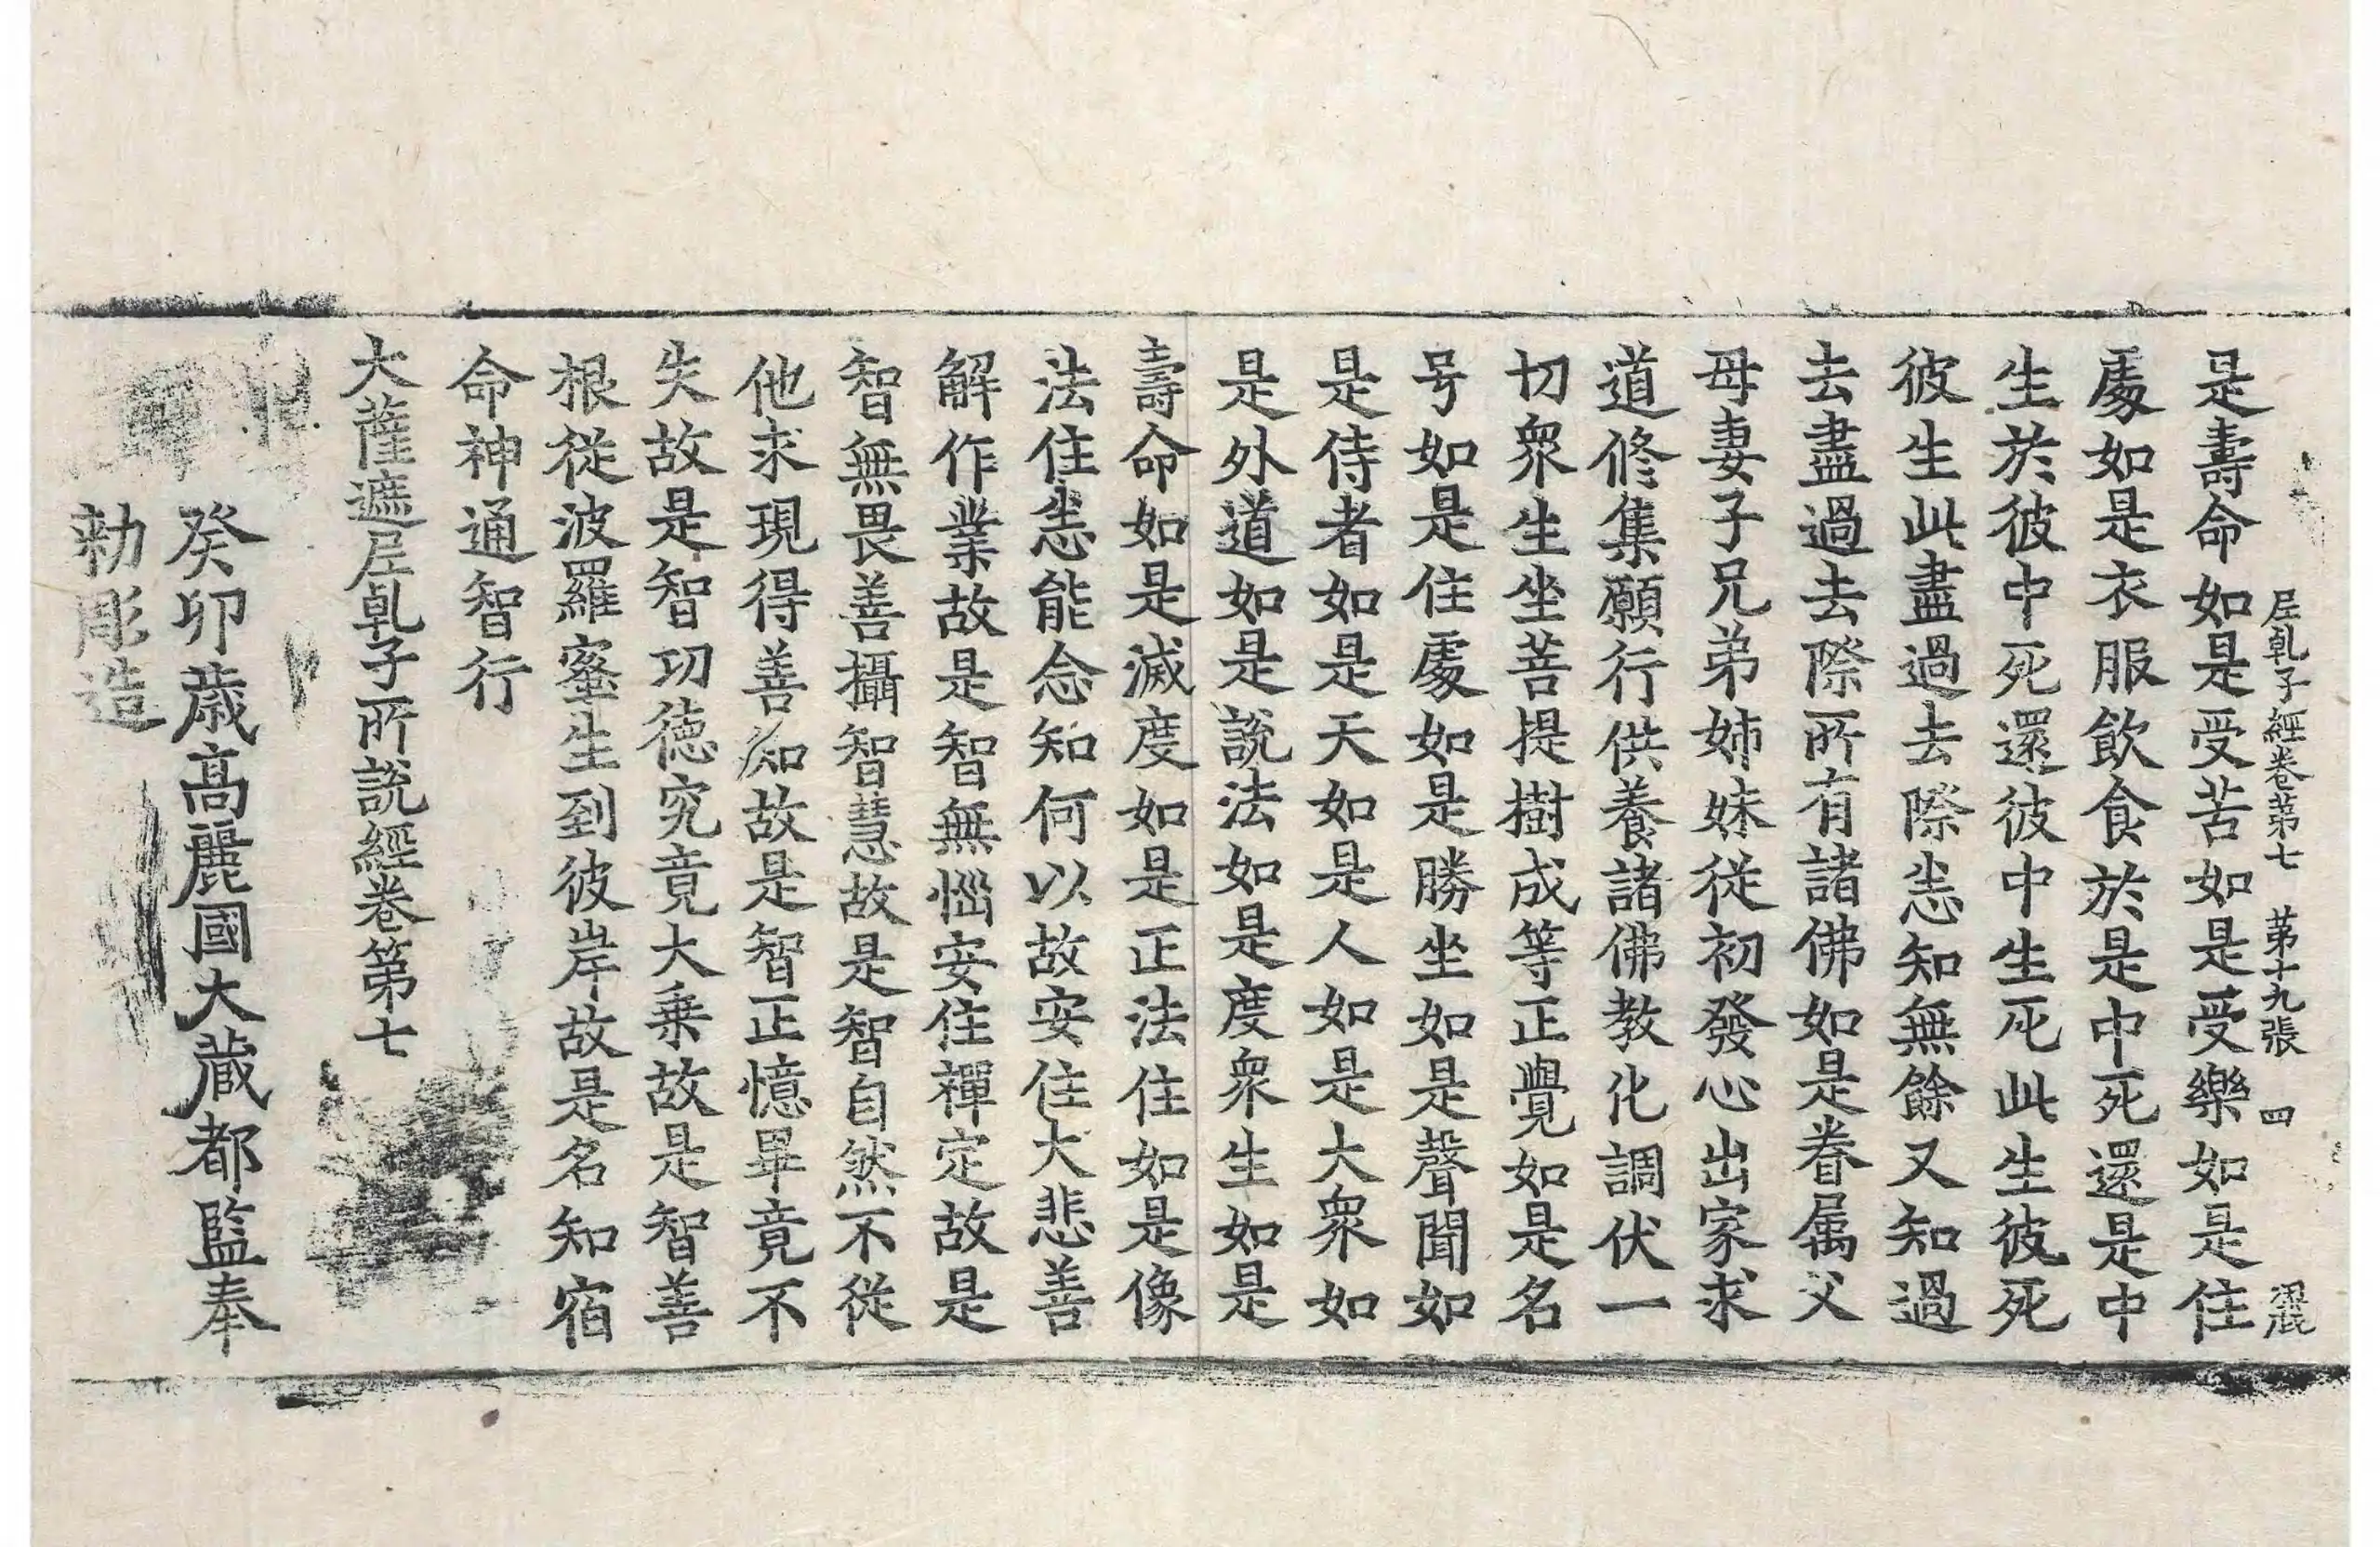 是壽命如是受苦如是受樂如是住
處如是衣服飲食於是中死還是中
生於彼中死還彼中生死此生彼死
彼生此盡過去際悉知無餘又知過
去盡過去際所有諸佛如是眷属父
母妻子兄弟姉妹從初發心出家求
道修集願行供養諸佛教化調伏一
切衆生坐菩提樹成等正覺如是名
号如是住處如是勝坐如是聲聞如
是侍者如是天如是人如是大衆如
是外道如是說法如是度衆生如是
壽命如是滅度如是正法住如是像
法住悉能念知何以故安住大悲善
解作業故是智無惱安住禪定故是
智無畏善攝智慧故是智自然不從
他求現得善知故是智正憶畢竟不
失故是智功徳究竟大乗故是智善
根從波羅蜜生到彼岸故是名知宿
命神通智行
大薩遮尼乹子所說經卷第七
癸卯歳髙麗國大藏都監奉
勅彫造
尼乹子經卷第七 第十九張 四